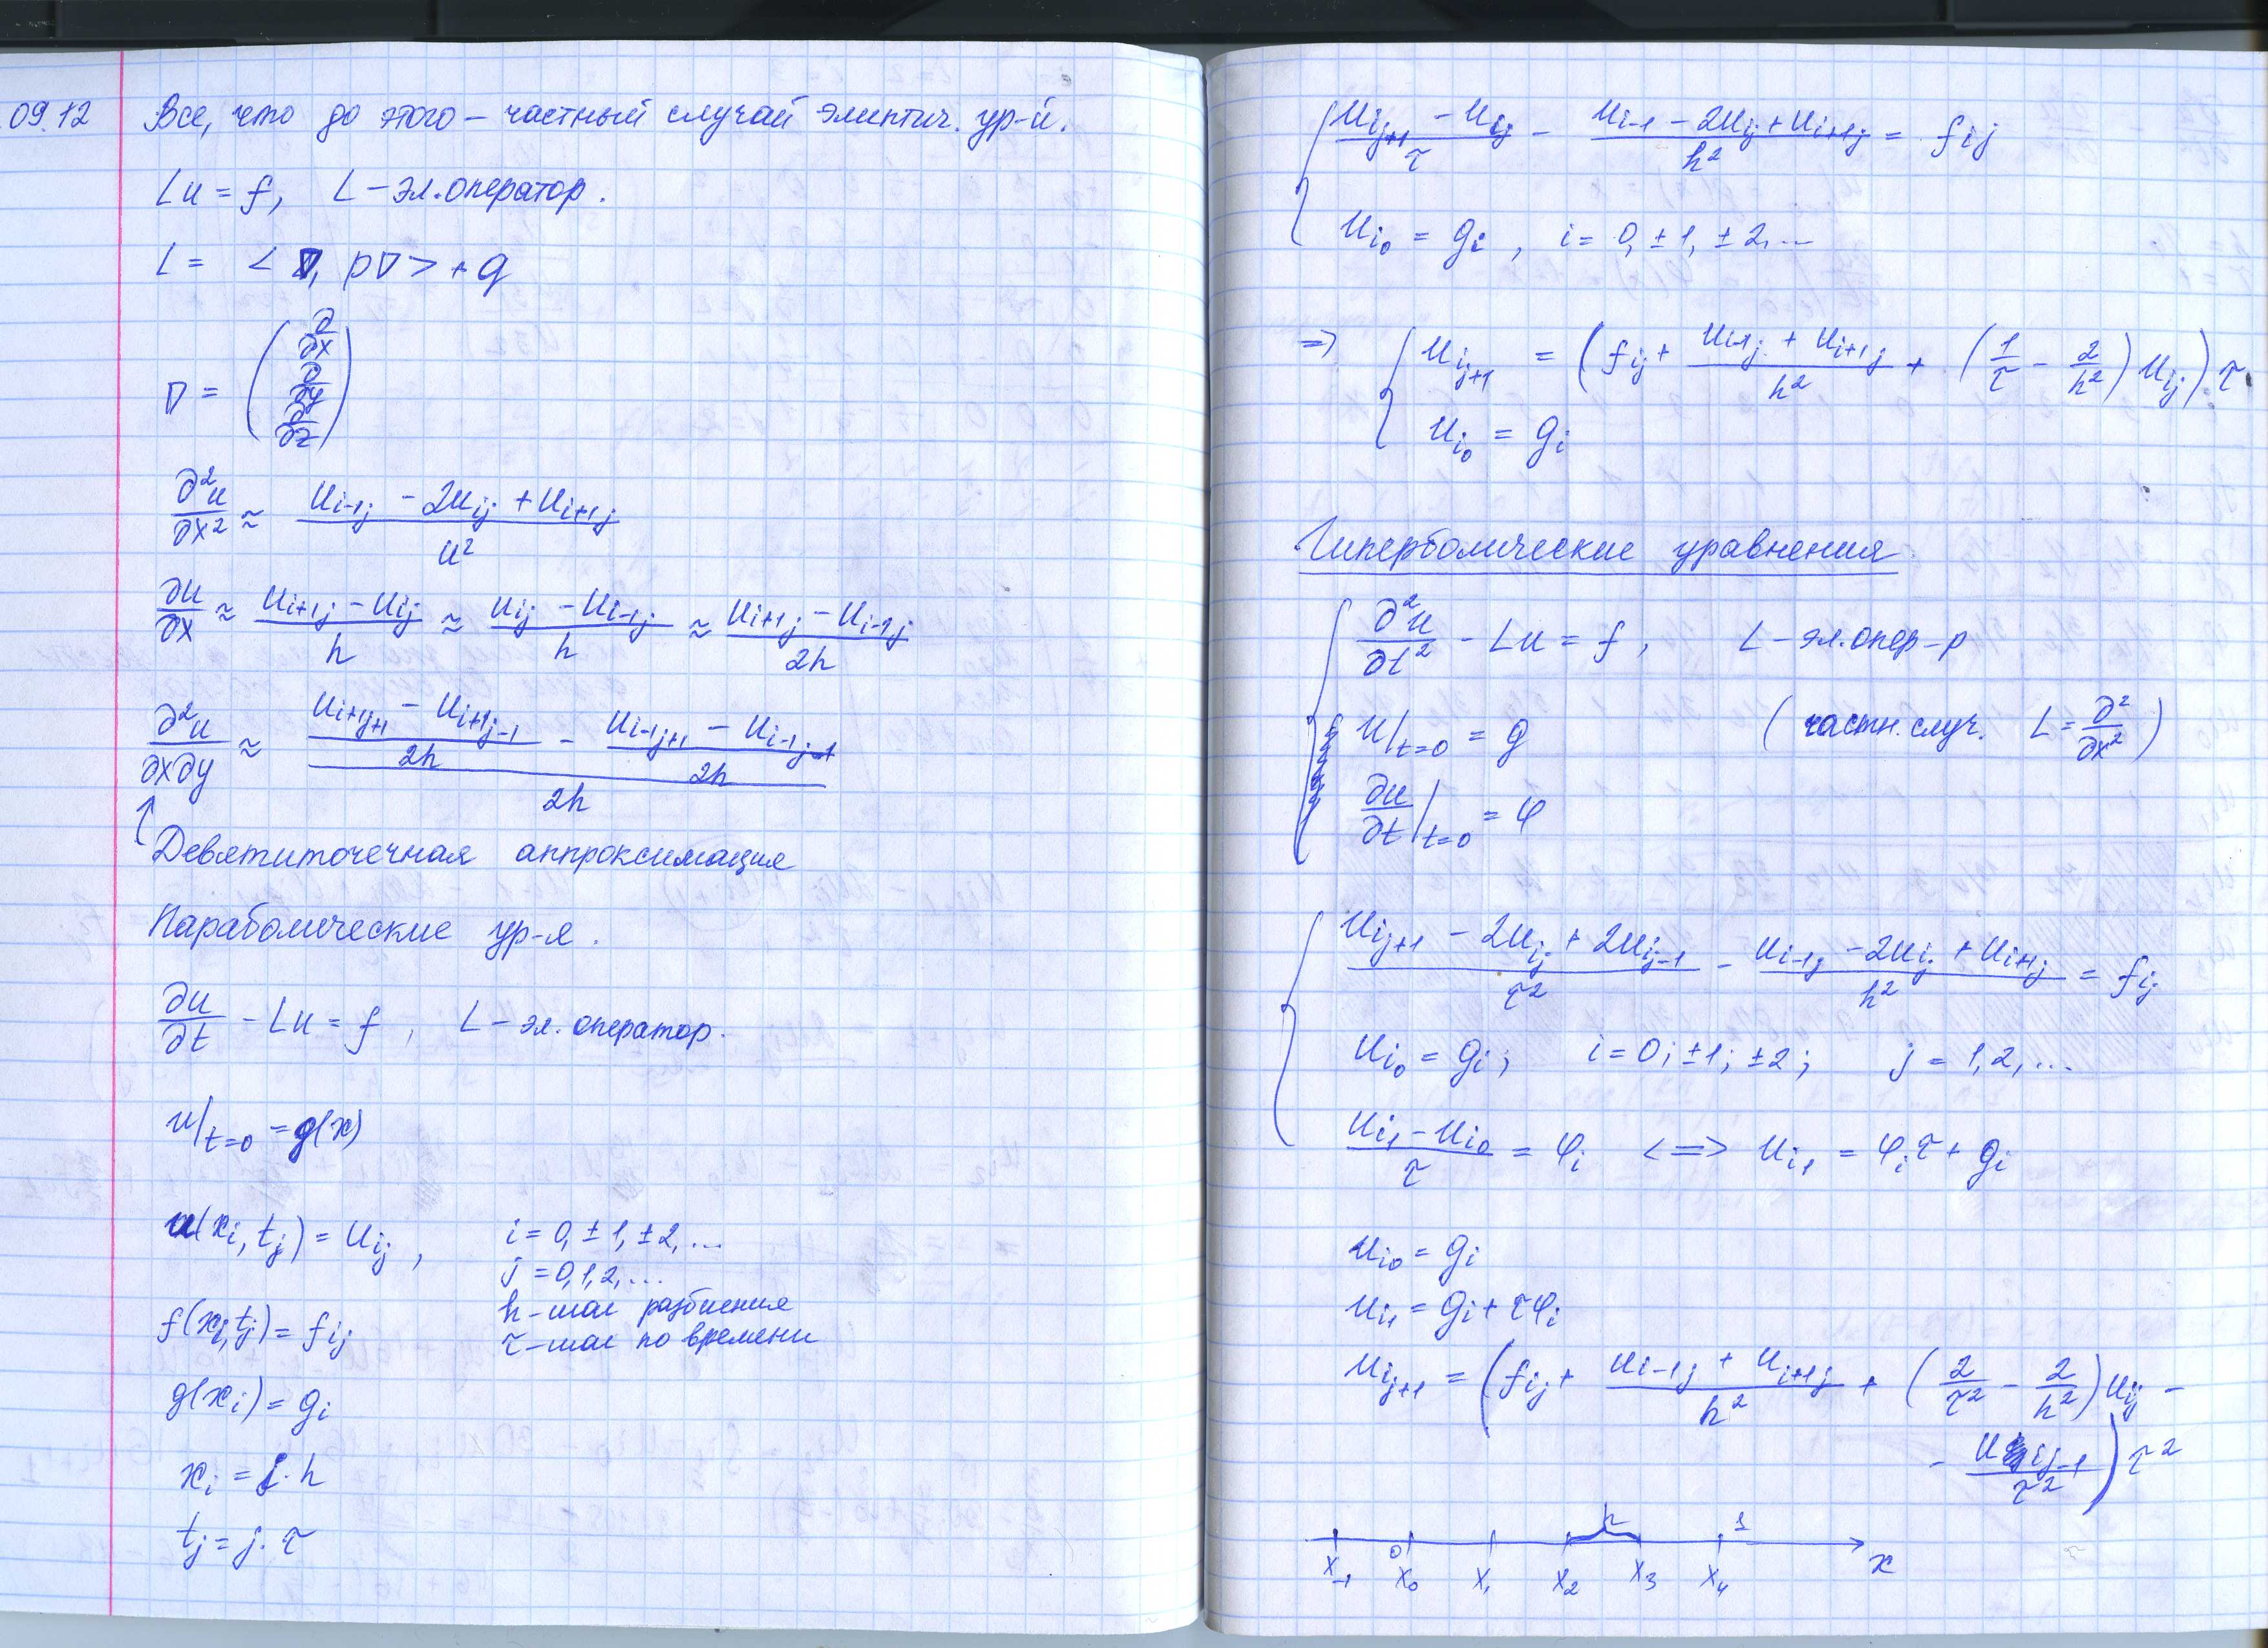 09.12 Все, что до этого – частный случай элиптич. ур-й.
Lu = f, L – эл. оператор.
L = < ∇, p∇ > + q
∇ = ( ∂/∂x ∂/∂y ∂/∂z )
∂²u/∂x² ≈ (u_{i-1j} - 2u_{ij} + u_{i+1j})/u²
∂u/∂x ≈ (u_{i+1j} - u_{ij})/h ≈ (u_{ij} - u_{i-1j})/h ≈ (u_{i+1j} - u_{i-1j})/2h
∂²u/∂x∂y ≈ ((u_{i+1j+1} - u_{i+1j-1})/2h - (u_{i-1j+1} - u_{i-1j-1})/2h)/2h
↑ Девятиточечная аппроксимация
Параболические ур-я.
∂u/∂t - Lu = f, L – эл. оператор.
u|_{t=0} = g(x)
u(x_i, t_j) = u_{ij}, i = 0, ±1, ±2, ...
j = 0, 1, 2, ...
h – шаг разбиения
f(x_i, t_j) = f_{ij} τ – шаг по времени
g(x_i) = g_i
x_i = i · h
t_j = j · τ
{ (u_{ij+1} - u_{ij})/τ - (u_{i-1} - 2u_{ij} + u_{i+1j})/h² = f_{ij}
u_{i0} = g_i, i = 0, ±1, ±2, ...
⇒ { u_{ij+1} = (f_{ij} + (u_{i-1j} + u_{i+1j})/h² + (1/τ - 2/h²) u_{ij}) τ
u_{i0} = g_i
Гиперболические уравнения
{ ∂²u/∂t² - Lu = f, L – эл. опер-р
u|_{t=0} = g (частн. случ. L = ∂²/∂x²)
∂u/∂t|_{t=0} = φ
{ (u_{ij+1} - 2u_{ij} + 2u_{ij-1})/τ² - (u_{i-1j} - 2u_{ij} + u_{i+1j})/h² = f_{ij}
u_{i0} = g_i; i = 0; ±1; ±2; j = 1, 2, ...
(u_{i1} - u_{i0})/τ = φ_i <=> u_{i1} = φ_i τ + g_i
u_{i0} = g_i
u_{i1} = g_i + τφ_i
u_{ij+1} = (f_{ij} + (u_{i-1j} + u_{i+1j})/h² + (2/τ² - 2/h²) u_{ij} -
- u_{ij-1}/τ²) τ²
0 h 1
x_{-1} x_0 x_1 x_2 x_3 x_4 x